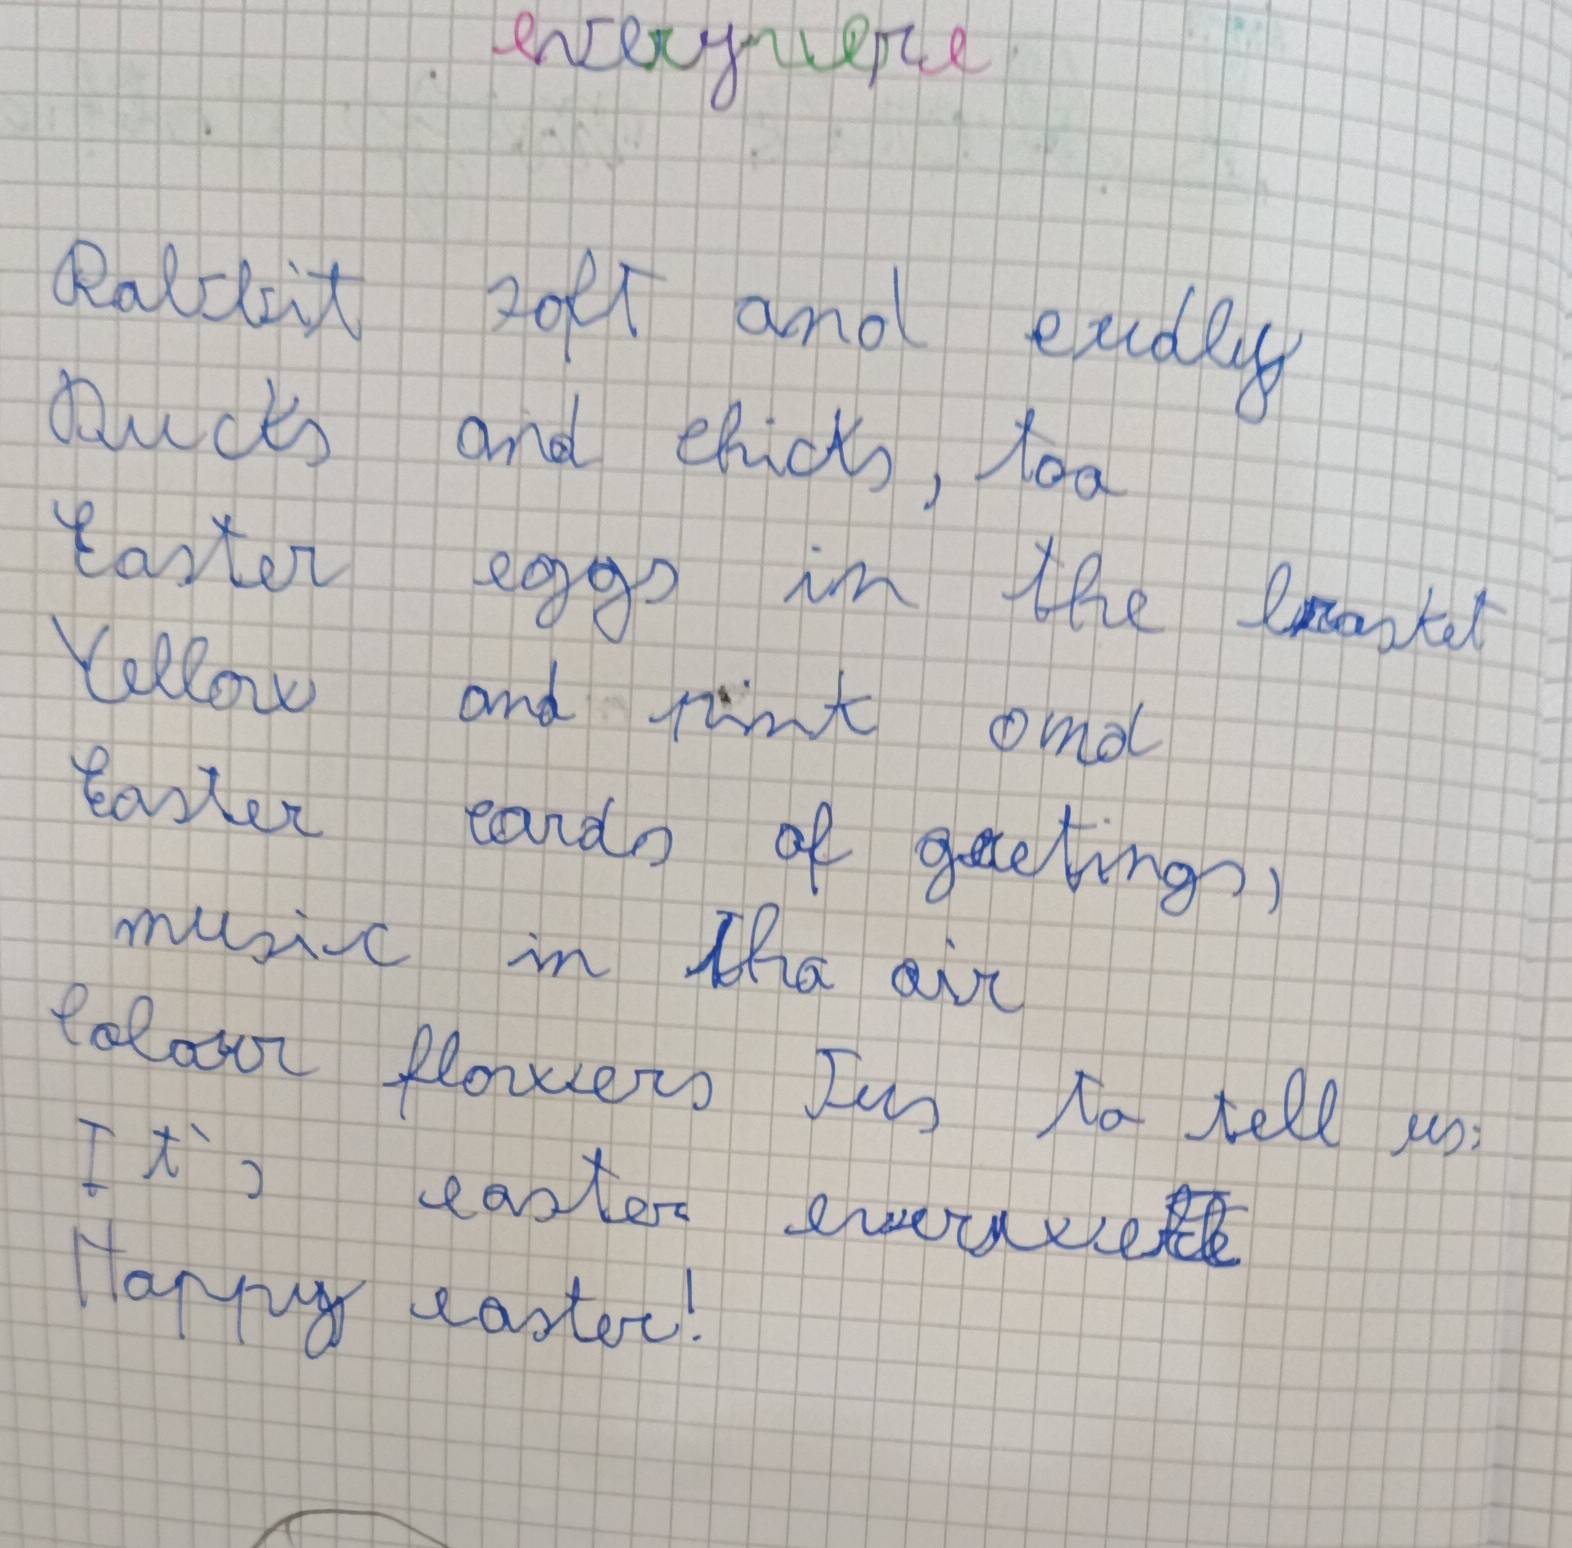 everywere
Rabbit soft and cudly
Ducks and chicks, too
Easter eggs in the basket
Yellow and pink and
Easter cards of greetings,
music in tha air
Colour flowers Jus to tell us:
It's easter
Happy easter!